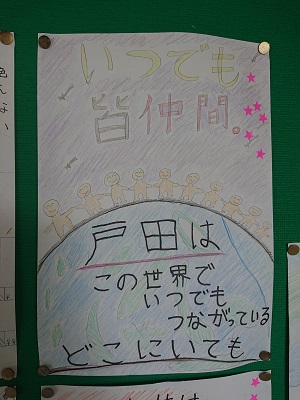 いつでも
皆仲間。
戸田は
この世界で
いつでも
つながっている
どこにいても